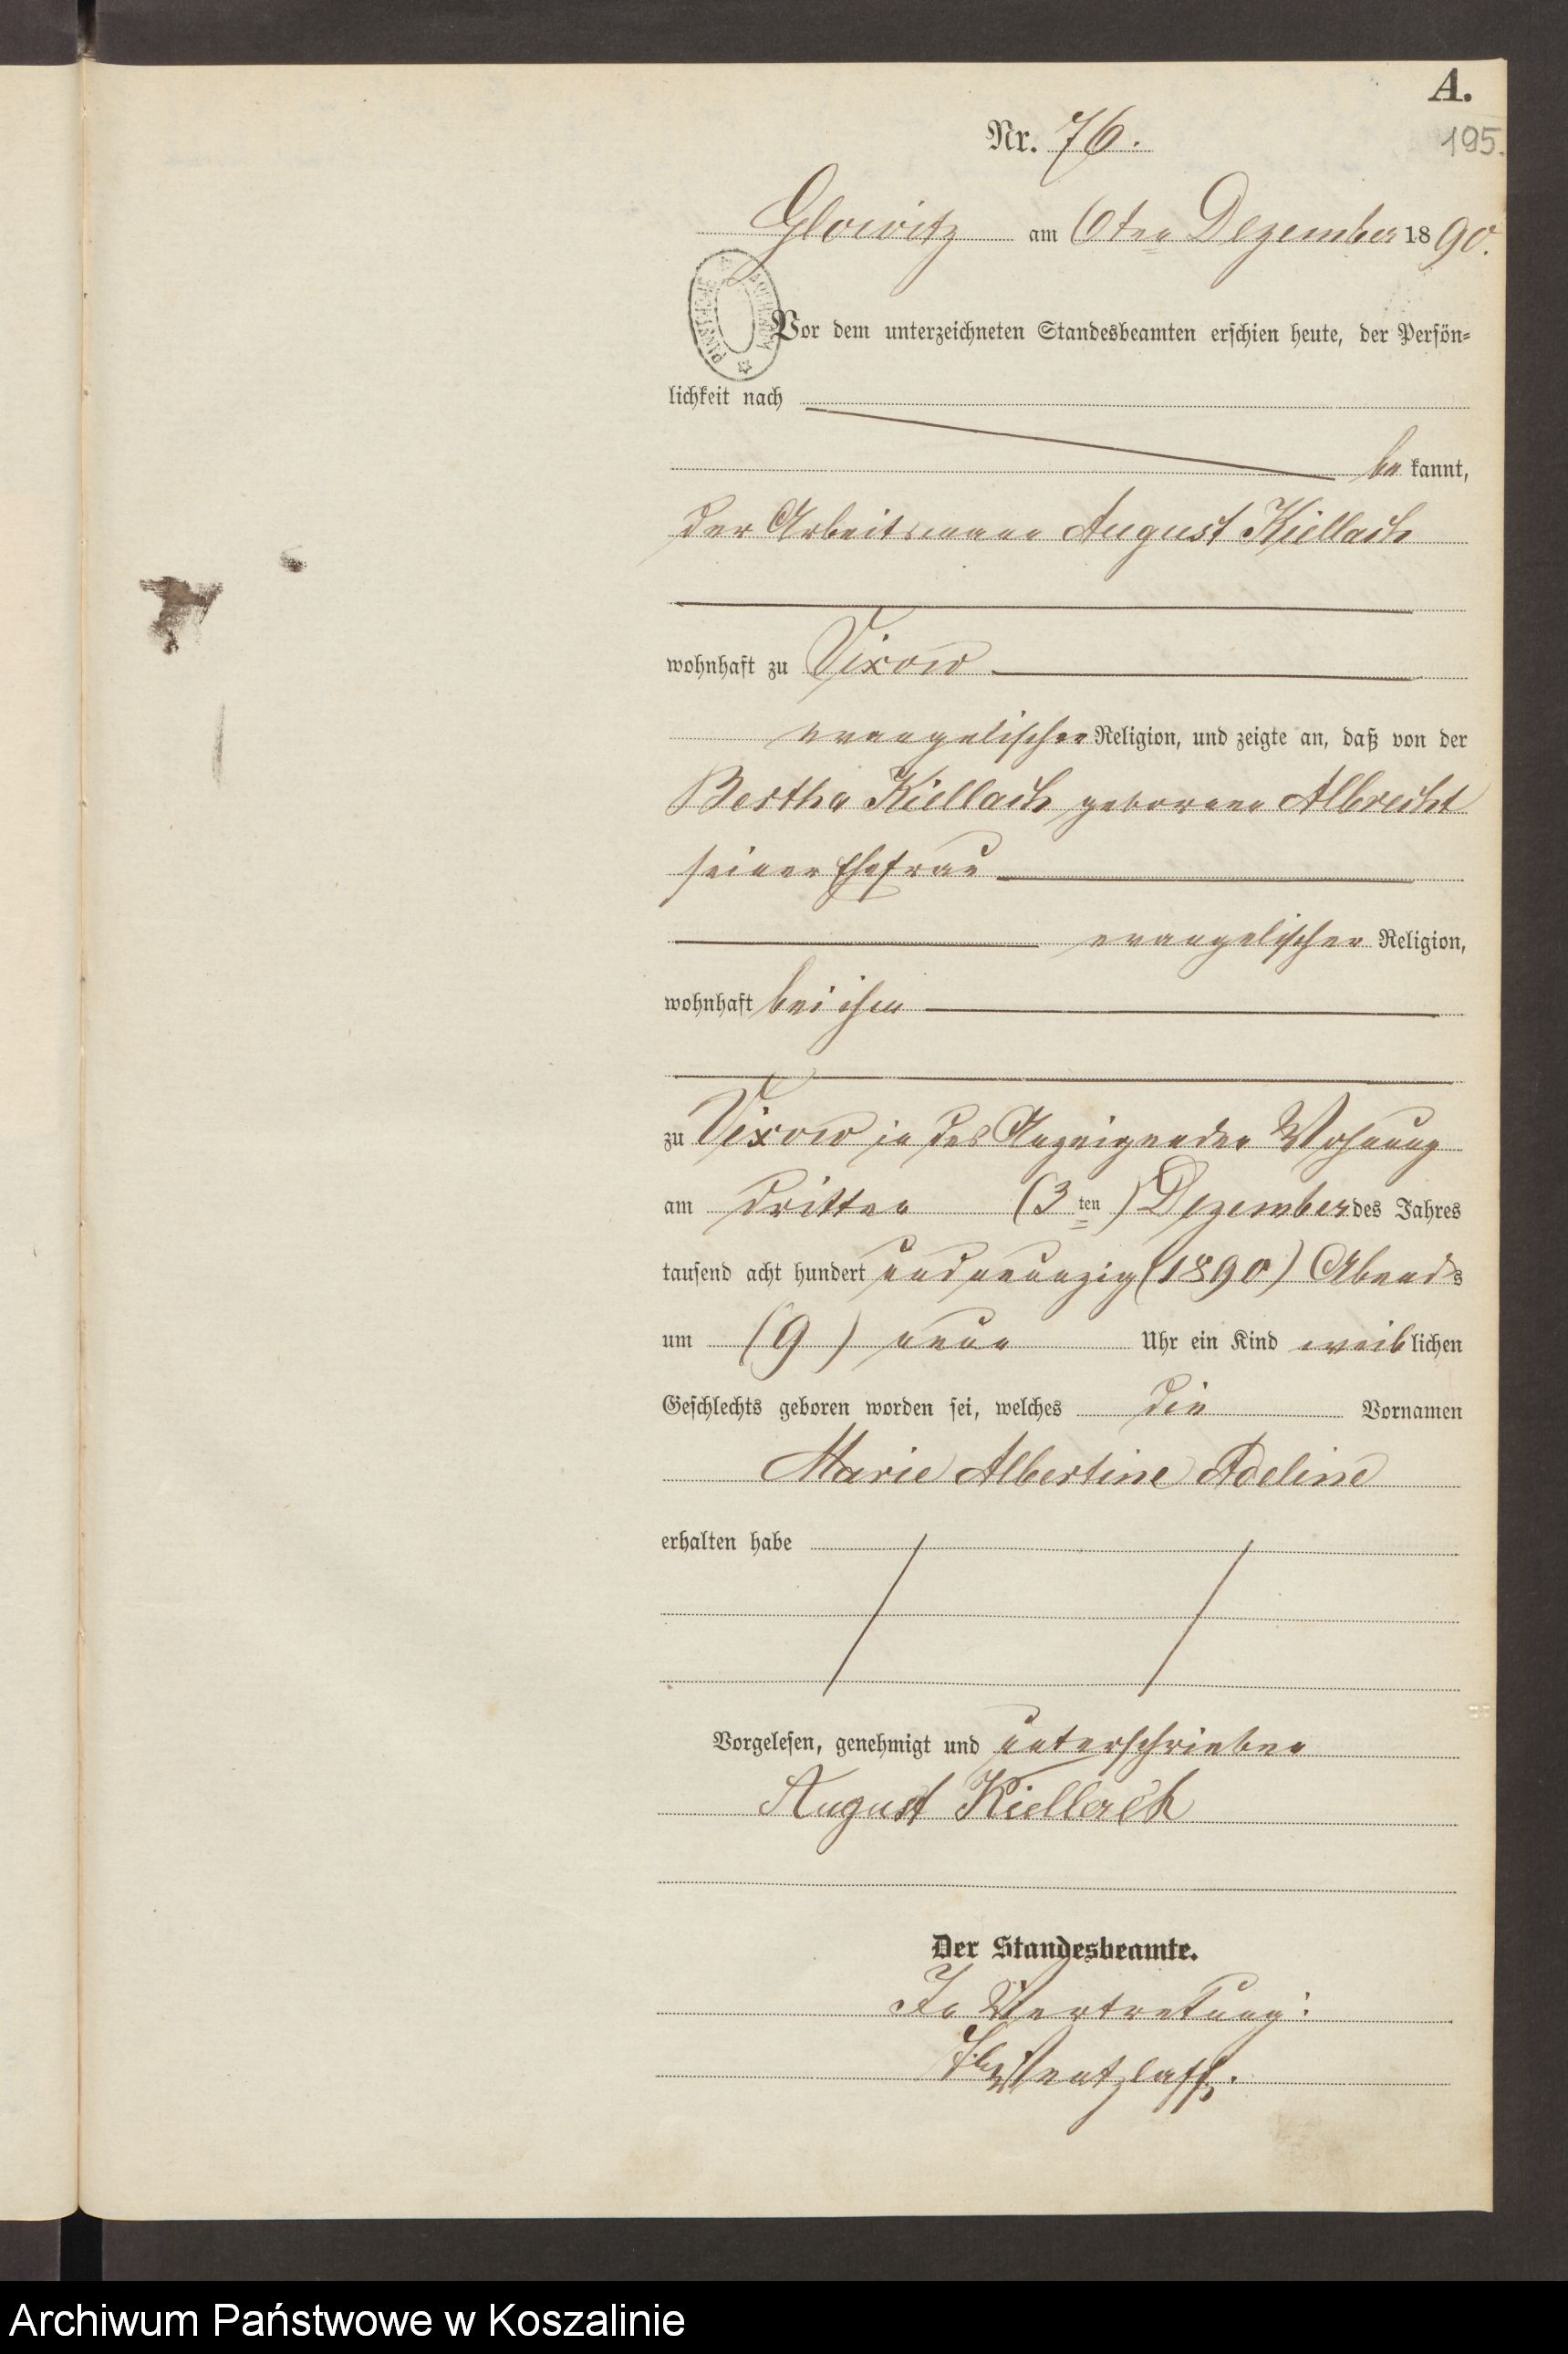 A.
195.
Nr. 76.
Glowitz am 6ten Dezember 1890.
Vor dem unterzeichneten Standesbeamten erschien heute, der Persön-
lichkeit nach
be kannt,
der Arbeitsmann August Kiellach
wohnhaft zu Vixow
evangelischer Religion, und zeigte an, daß von der
Bertha Kiellach geborene Albrecht
seiner Ehefrau
evangelischer Religion,
wohnhaft bei ihm
zu Vixow in des Anzeigenden Wohnung
am dritten (3 ten) Dezember des Jahres
tausend acht hundert und neunzig (1890) Abends
um (9) neun Uhr ein Kind weiblichen
Geschlechts geboren worden sei, welches die Vornamen
Marie Albertine Adeline
erhalten habe
Vorgelesen, genehmigt und unterschrieben
August Kiellach
Der Standesbeamte.
In Vertretung:
Wentzlaff.
Archiwum Państwowe w Koszalinie